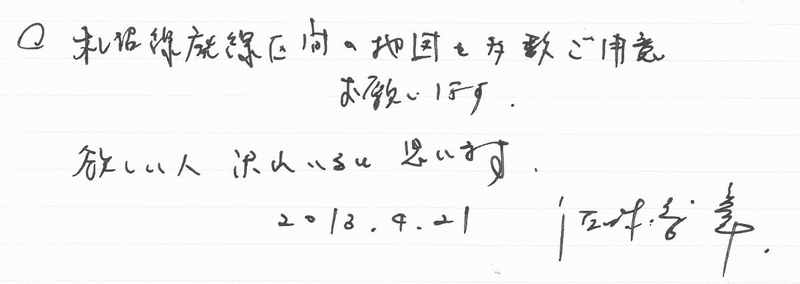 ○ 札沼線廃線区間の地図を多数ご用意
お願いします.
欲しい人 沢山いると思います.
2013.4.21